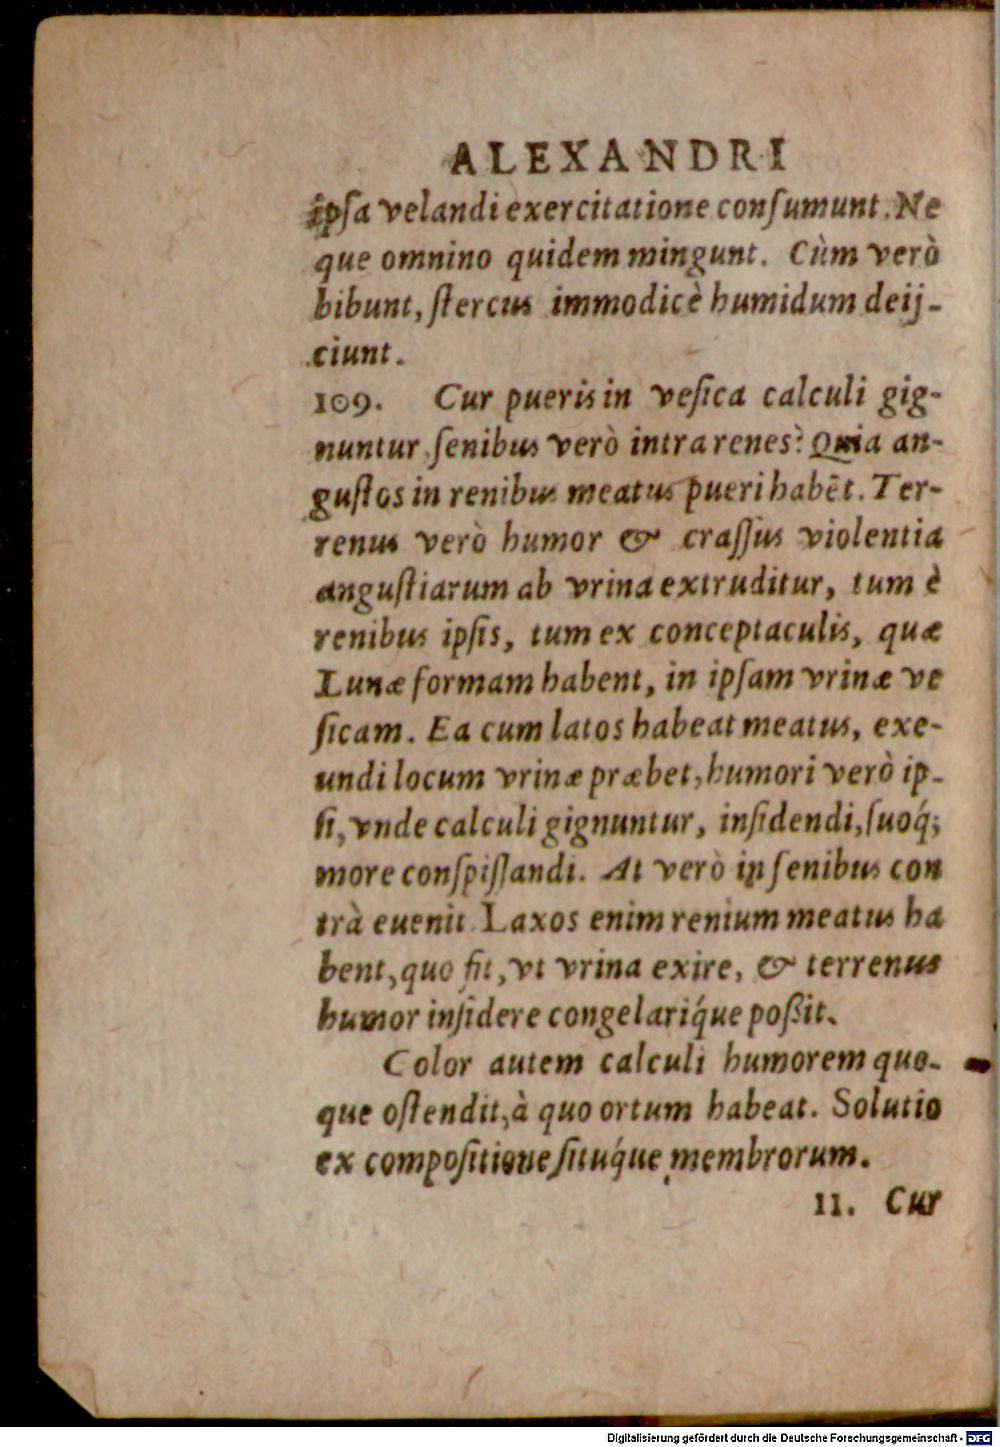 ALEXANDRI
ipſa velandi exercitatione conſumunt. Ne
que omnino quidem mingunt. Cùm verò
bibunt, ſtercus immodicè humidum deij-
ciunt.
109. Cur pueris in veſica calculi gig-
nuntur ſenibus verò intra renes? Quia an-
guſtos in renibus meatus pueri habēt. Ter-
renus verò humor & craſſus violentia
anguſtiarum ab vrina extruditur, tum è
renibus ipſis, tum ex conceptaculis, quæ
Lunæ formam habent, in ipſam vrinæ ve
ſicam. Ea cum latos habeat meatus, exe-
undi locum vrinæ præbet, humori verò ip-
ſi, vnde calculi gignuntur, inſidendi, ſuoq́;
more conſpiſſandi. At verò in ſenibus con
trà euenit Laxos enim renium meatus ha
bent, quo fit, vt vrina exire, & terrenus
humor inſidere congelariq́ue poßit.
Color autem calculi humorem quo-
que oſtendit, à quo ortum habeat. Solutio
ex compoſitione ſituq́ue membrorum.
11. Cur
Digitalisierung gefördert durch die Deutsche Forschungsgemeinschaft - DFG